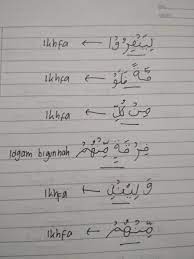 لِيَنْفِرُوْا ← Ikhfa
فَّةً فَلَوْ ← Ikhfa
مِنْ كُلِّ ← Ikhfa
فِرْقَةٍ مِّنْهُمْ ← Idgam biginhah
وَلِيُنْذِ ← Ikhfa
مِّنْهُمْ ← Ikhfa